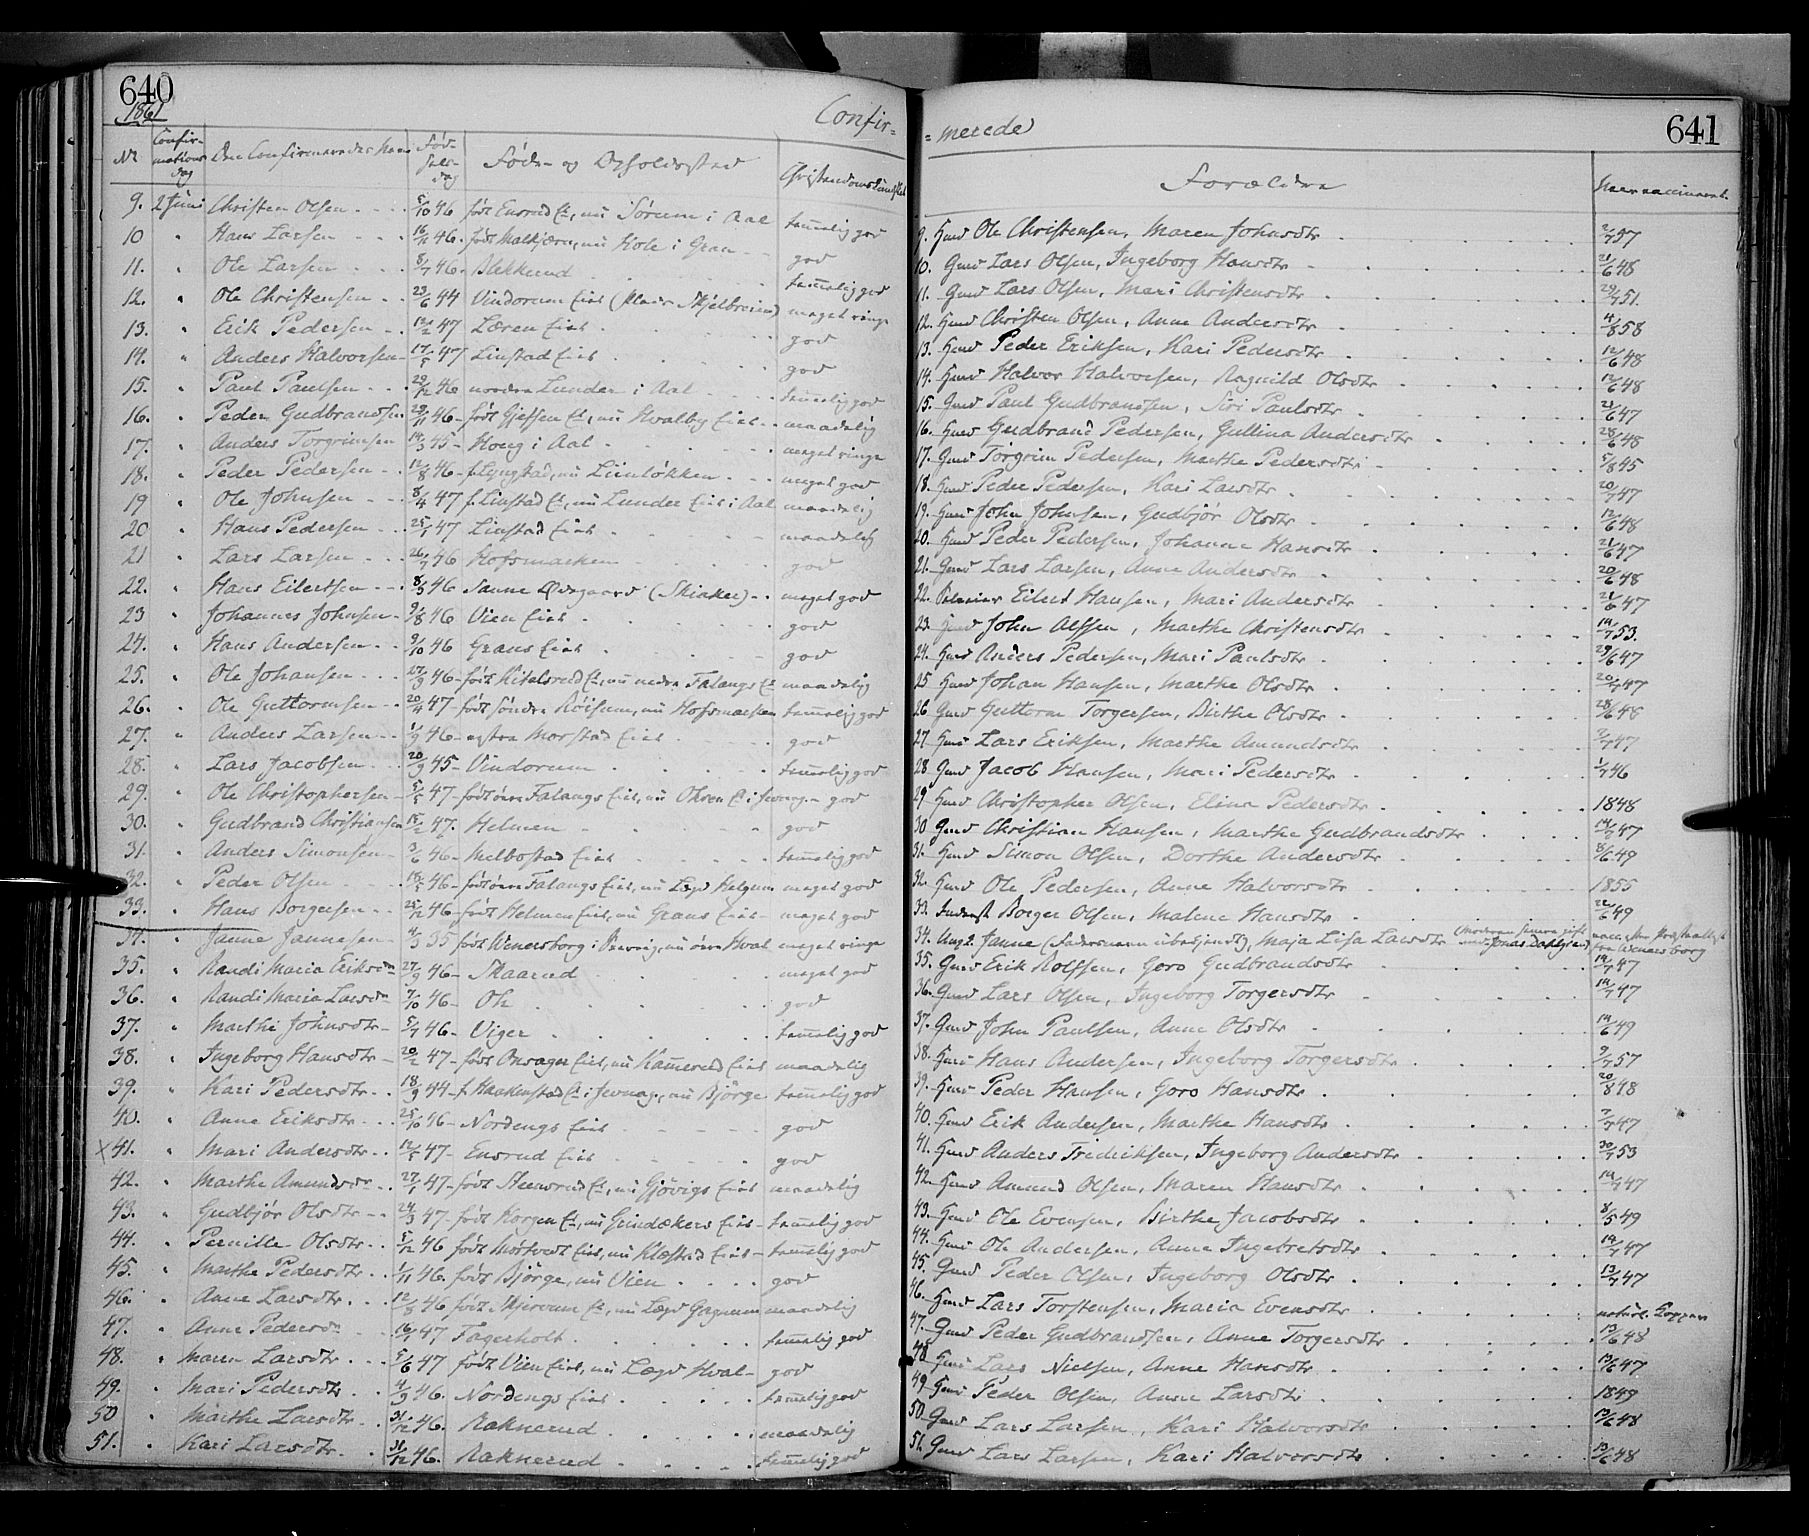 640
1861
Confir-
No Confir-mations dag Den Confirmeredes Navn Fød-sels-dag Føde- og Opholdssted Christendomskundskab
9. 2 Juni Christen Olsen 5/10 46 født Ensrud Et, nu Sørum i Aal temmelig god
10 " Hans Larsen 16/11 46. født Molkjærn, nu Hole i Gran god
11. " Ole Larsen 8/7 46. Blekkerud temmelig god
12. " Ole Christensen 23/6 44 Vindorum Eiet (Plads Skjelbreien) meget ringe
13. " Erik Pedersen 12/2 47 Læren Eiet god
14. " Anders Halvorsen 17/5 47 Linstad Eiet god
15. " Paul Paulsen 29/12 46 nordre Lunder i Aal temmelig god
16. " Peder Gudbrandsen 29/11 46 født Gjefsen Et, nu Hvalby Eiet maadelig
17. " Anders Torgrimsen 14/3 45 Houg i Aal meget ringe
18. " Peder Pedersen 12/8 46 f. Lyngstad, nu Liinløkken meget god
19 " Ole Johnsen 8/4 47 f. Linstad Et, nu Lunder Eiet i Aal maadelig
20 " Hans Pedersen 25/1 47 Linstad Eiet maadelig
21 " Lars Larsen 26/7 46 Hofsmarken god
22. " Hans Eilertsen 8/5 46 Sanne Ødegaard (Skiaker) meget god
23 " Johannes Johnsen 9/8 46 Vien Eiet god
24. " Hans Andersen 9/10 46 Grans Eiet god
25. " Ole Johansen 27/9 46 født Kitelsrud Et, nu nedre Falangs Et maadelig
26. " Ole Guttormsen 20/4 47 født søndre Röisum, nu Hofsmarken temmelig god
27. " Anders Larsen 1/9 46 østre Morstad Eiet god
28. " Lars Jacobsen 20/9 45 Vindorum temmelig god
29. " Ole Christophersen 5/5 47 født øvre Falangs Eiet, nu Ohren Et i Jevnag. god
30. " Gudbrand Christiansen 15/2 47. Helmen god
31. " Anders Simonsen 3/6 46 Melbostad Eiet temmelig god
32. " Peder Olsen 18/5 46 født øvre Falangs Eiet, nu Lægd Helgum meget god
33. " Hans Borgersen 25/12 46 født Helmen Eiet, nu Grans Eiet meget god
34. " Janne Jannesen 4/3 35 født Wenersborg i Sverrig, nu øvre Hval meget ringe
35. " Randi Maria Eriksdr 27/9 46 Skaarud meget god
36. " Randi Maria Larsdr 7/10 46 Oh god
37. " Marthe Johnsdtr 5/7 46 Viger temmelig god
38. " Ingeborg Hansdtr 20/2 47 født Onsager Eiet, nu Kamerud Eiet maadelig
39. " Kari Pedersdtr 18/9 44 f. Haakenstad Et i Jevnag., nu Bjørge temmelig god
40. " Anne Eriksdtr 25/10 46 Nordengs Eiet god
x 41. " Mari Andersdtr 12/5 47 Ensrud Eiet god
42. " Marthe Amundsdr 27/1 47 født Steensrud Et, nu Gjövigs Eiet maadelig
43. " Gudbjør Olsdtr 24/3 47 født Korgen Et, nu Grindakers Eiet temmelig god
44. " Pernille Olsdtr 5/12 46 født Mörtvedt Eiet, nu Klæstad Eiet temmelig god
45. " Marthe Pedersdtr 1/11 46. født Bjørge, nu Vien god
46. " Anne Larsdtr 12/8 46 født Skjervum Et, nu Lægd Gagnum maadelig
47. " Anne Pedersdr 16/1 47 Fagerholt temmelig god
48. " Maren Larsdtr 5/6 47 født Vien Eiet, nu Lægd Hval god
49. " Mari Pedersdtr 4/9 46. Nordengs Eiet temmelig god
50 " Marthe Larsdtr 31/12 46. Raknerud maadelig
51. " Kari Larsdtr 31/12 46. Raknerud temmelig god
641
-merede
Forældre Naar vaccineret.
9. Hmd Ole Christensen, Maren Johnsdtr 2/7 57
10. Gmd Lars Olsen, Ingeborg Hansdtr 21/6 48
11. Gmd Lars Olsen, Mari Christensdtr 29/7 51
12. Hmd Christen Olsen, Anne Andersdtr 4/8 58
13. Hmd Peder Eriksen, Kari Pedersdtr 12/6 48
14. Hmd Halvor Halvorsen, Ragnild Olsdtr 12/6 48
15. Gmd Paul Gudbrandsen, Siri Paulsdtr 23/6 47
16. Hmd Gudbrand Pedersen, Gullina Andersdtr 28/6 48
17. Gmd Torgrim Pedersen, Marthe Pedersdtr 5/8 45
18. Hmd Peder Pedersen, Kari Larsdtr 20/7 47
19. Hmd John Johnsen, Gudbjør Olsdtr 12/6 48
20. Hmd Peder Pedersen, Johanne Hansdtr 21/6 47
21. Gmd Lars Larsen, Anne Andersdtr 20/6 48
22. Eilert Hansen, Mari Andersdtr 21/6 47
23. Hmd John Alfsen, Marthe Christensdtr 19/7 53.
24. Hmd Anders Pedersen, Mari Paulsdtr 29/6 47
25 Hmd Johan Hansen, Marthe Olsdtr 20/7 47
26 Gmd Guttorm Torgersen, Birthe Olsdtr 28/6 48
27. Hmd Lars Eriksen, Marthe Amundsdtr 2/7 47
28 Gmd Jacob Hansen, Mari Pedersdtr 1/7 46
29 Hmd Christopher Olsen, Elina Pedersdtr 1848
30 Gmd Christian Hansen, Marthe Gudbrandsdtr 14/8 47
31. Hmd Simon Olsen, Dorthe Andersdtr 8/6 49
32. Hmd Ole Pedersen, Anne Halvorsdtr 1855
33. Inderst Borger Olsen, Malene Hansdtr 22/6 49
34. Ung. Janne (Fadersnavn ubekjendt), Maja Lisa Larsdtr (Moderen senere gift med Jonas Dahlgren) vacc. efter Præsteattest fra Wenersborg
35. Gmd Erik Rolfsen, Goro Gudbrandsdtr 19/7 47
36. Gmd Lars Olsen, Ingeborg Torgersdtr 19/7 47
37. Gmd John Paulsen, Anne Olsdtr 19/6 49
38. Hmd Hans Andersen, Ingeborg Torgersdtr 9/7 57
39. Hmd Peder Hansen, Goro Hansdtr 20/8 48
40. Hmd Erik Andersen, Marthe Hansdtr 7/7 47
41. Hmd Anders Fredriksen, Ingeborg Andersdtr 30/7 53
42. Hmd Amund Olsen, Maren Hansdtr 19/7 47
43. Hmd Ole Evensen, Birthe Jacobsdtr 8/5 49
44. Hmd Ole Andersen, Anne Ingebretsdtr 19/7 47
45. Gmd Peder Olsen, Ingeborg Olsdtr 13/7 47
46. Hmd Lars Torstensen, Maria Evensdtr naturl. Kopper
47. Gmd Peder Gudbrandsen, Anne Torgersdtr 13/6 48
48. Hmd Lars Nielsen, Anne Hansdtr 13/6 47
49. Hmd Peder Olsen, Anne Larsdtr 1849
50. Gmd Lars Larsen, Kari Halvorsdtr 13/6 48
51. Gmd Lars Larsen, Kari Halvorsdtr 13/6 48